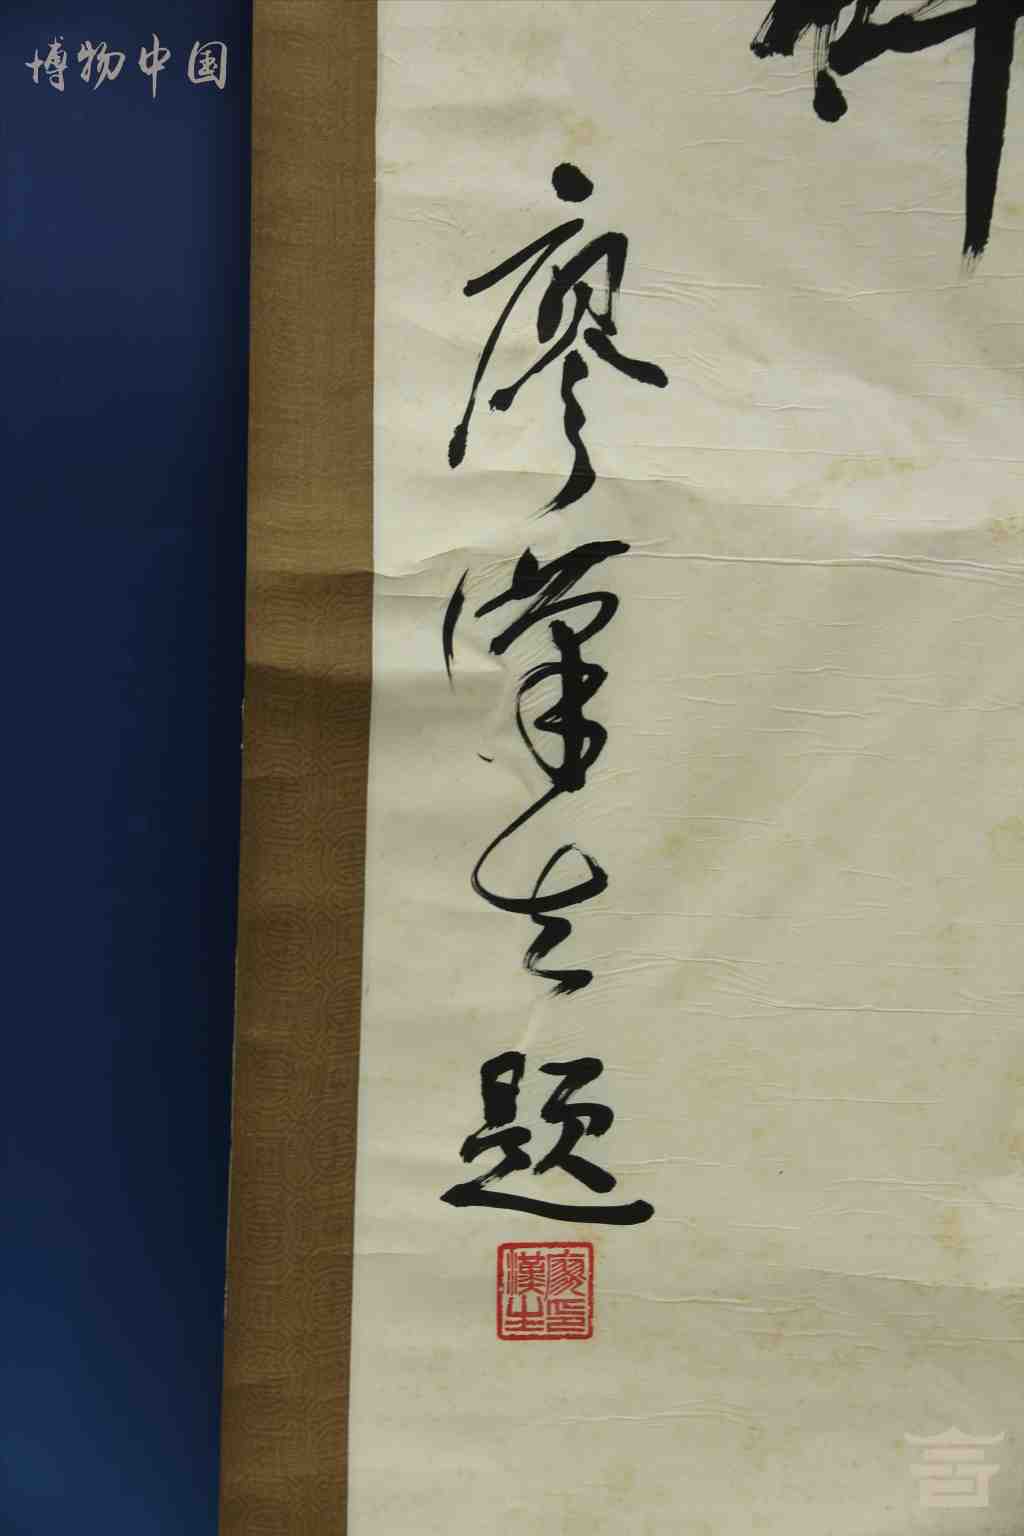 博物中国
廖漢生题
廖印漢生